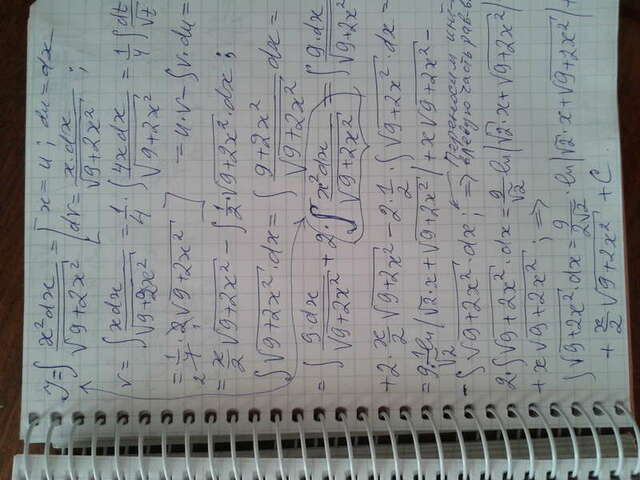 y = ∫ x²dx / √(9+2x²) = [ x = u ; du = dx
[ dv = xdx / √(9+2x²) ;
v = ∫ xdx / √(9+2x²) = 1/4 · ∫ 4xdx / √(9+2x²) = 1/4 ∫ dt / √t
= 1/4 · 2√(9+2x²) ] = u·v - ∫ v·du =
= x/2 √(9+2x²) - ∫ 1/2 · √(9+2x²) · dx ;
∫ √(9+2x²) · dx = ∫ (9+2x²) / √(9+2x²) · dx =
= ∫ 9dx / √(9+2x²) + 2 · ∫ x²dx / √(9+2x²) = ∫ 9·dx / √(9+2x²)
+ 2 · x/2 √(9+2x²) - 2 · 1/2 · ∫ √(9+2x²) · dx =
= 9 · 1/√2 ln|√2·x + √(9+2x²)| + x√(9+2x²) -
- ∫ √(9+2x²) · dx ; => Переносим
в левую часть
2·∫ √(9+2x²) · dx = 9/√2 · ln|√2·x + √(9+2x²)|
+ x√(9+2x²) ; =>
∫ √(9+2x²) · dx = 9/(2√2) · ln|√2·x + √(9+2x²)| +
+ x/2 √(9+2x²) + C